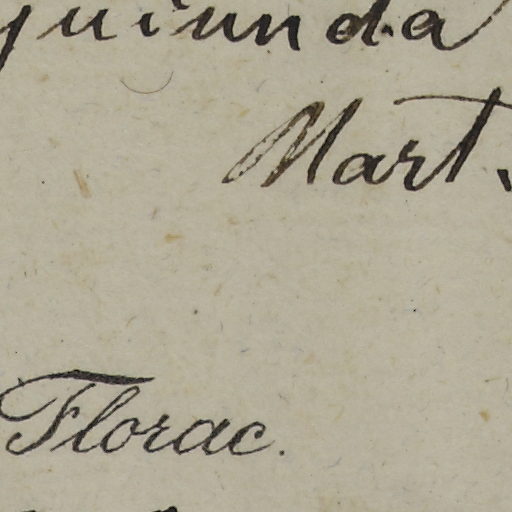 jucunda
Mart.
Florac.